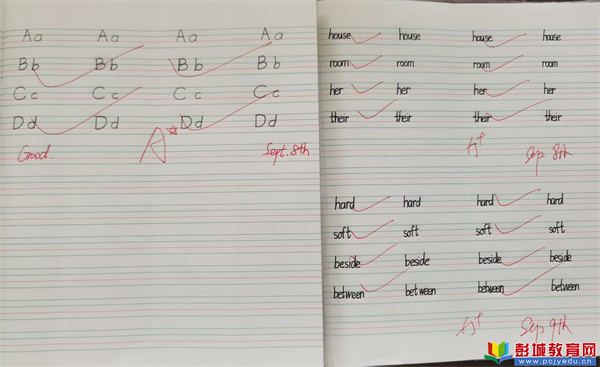 Aa Aa Aa Aa
Bb Bb Bb Bb
Cc Cc Cc Cc
Dd Dd Dd Dd
Good. A☆ Sept. 8th
house house house house
room room room room
her her her her
their their their their
A+ Sep 8th
hard hard hard hard
soft soft soft soft
beside beside beside beside
between between between between
A+ Sep 9th
彭城教育网
www.pcjyedu.cn